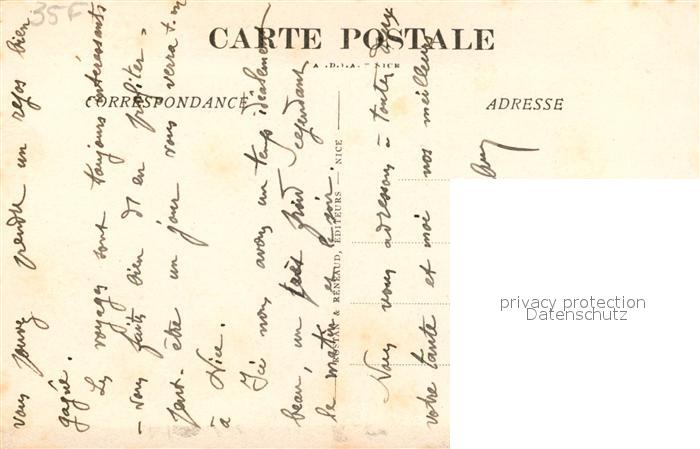 35F
CARTE POSTALE
CORRESPONDANCE
ADRESSE
ROSTAN & RENEAUD, ÉDITEURS — NICE
vous pouvez prendre un repos bien
gagné.
Les voyages sont toujours intéressants
– vous faites bien d'en profiter –
Peut-être un jour vous verra-t-on
à Nice.
Ici nous avons un temps idéalement
beau, un peu froid cependant
le matin et le soir.
Nous vous adressons à toutes deux
votre tante et moi nos meilleurs
privacy protection
Datenschutz